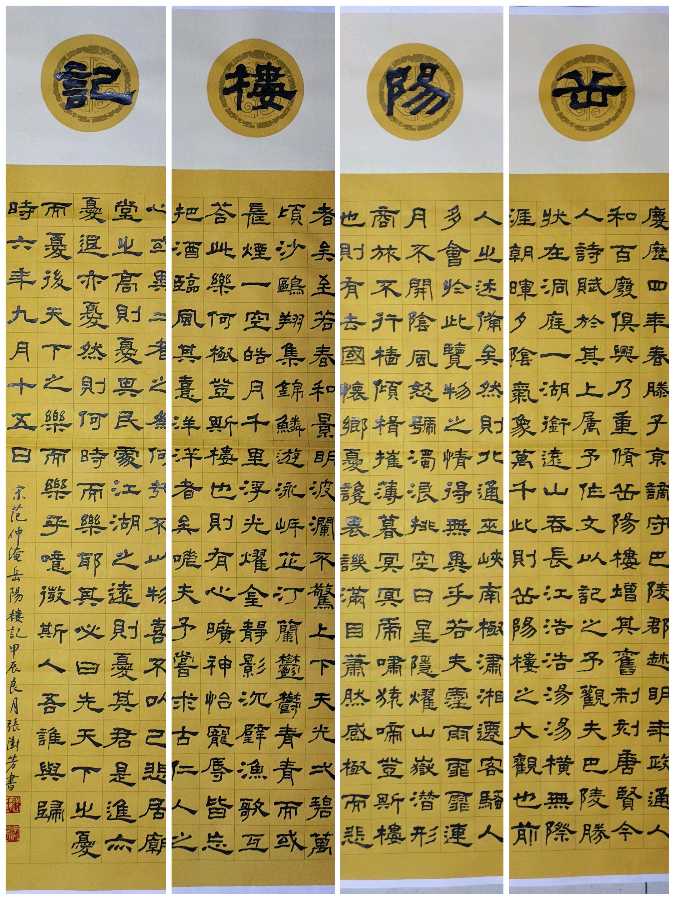 岳陽樓記
慶歷四年春滕子京謫守巴陵郡越明年政通人
和百廢俱興乃重脩岳陽樓增其舊制刻唐賢今
人詩賦於其上屬予作文以記之予觀夫巴陵勝
狀在洞庭一湖銜遠山吞長江浩浩湯湯橫無際
涯朝暉夕陰氣象萬千此則岳陽樓之大觀也前
人之述備矣然則北通巫峽南極瀟湘遷客騷人
多會於此覽物之情得無異乎若夫霪雨霏霏連
月不開陰風怒號濁浪排空日星隱燿山嶽潛形
商旅不行檣傾楫摧薄暮冥冥虎嘯猿啼登斯樓
也則有去國懷鄉憂讒畏譏滿目蕭然感極而悲
者矣至若春和景明波瀾不驚上下天光弌碧萬
頃沙鷗翔集錦鱗游泳岸芷汀蘭鬱鬱青青而或
長煙一空皓月千里浮光燿金靜影沉璧漁歌互
答此樂何極登斯樓也則有心曠神怡寵辱皆忘
把酒臨風其喜洋洋者矣嗟夫予嘗求古仁人之
心或異二者之為何哉不以物喜不以己悲居廟
堂之高則憂其民處江湖之遠則憂其君是進亦
憂退亦憂然則何時而樂耶其必曰先天下之憂
而憂後天下之樂而樂乎噫微斯人吾誰與歸
時六年九月十五日
宋范仲淹岳陽樓記甲辰良月張樹芳書